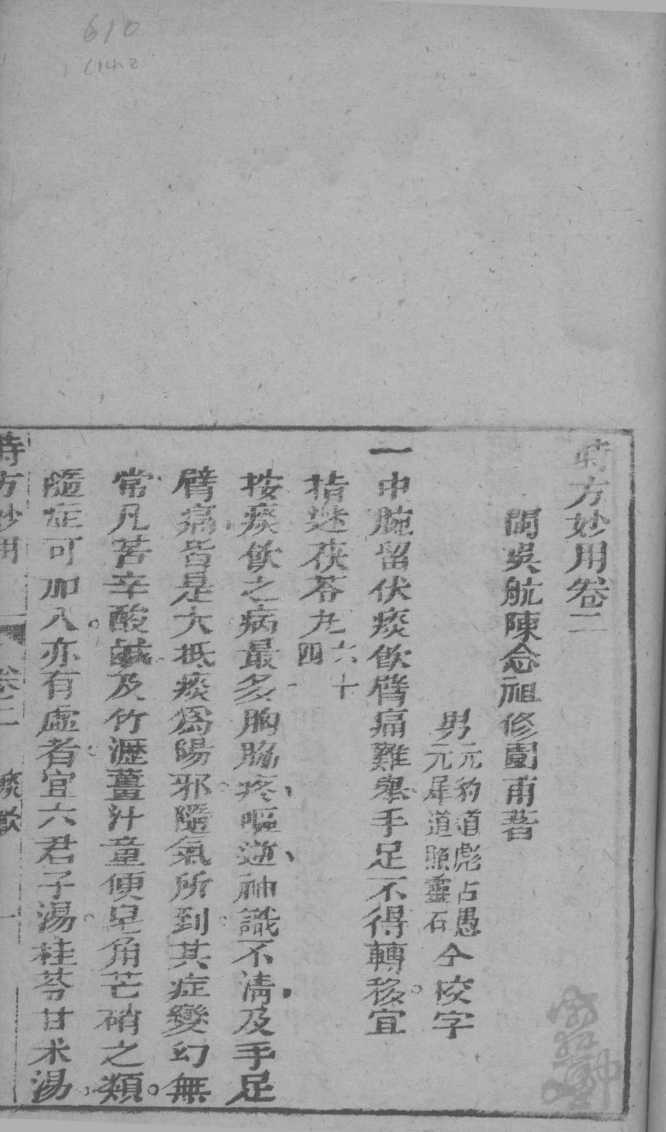 610
時方妙用卷二
閩吳航陳念祖修園甫著
男元豹道彪占愚
元犀道照靈石
仝校字
一中脘留伏痰飲臂痛難舉手足不得轉移宜
指迷茯苓丸六十四
按痰飲之病最多胸脇疼嘔逆神識不清及手足
臂痛皆是大抵痰為陽邪隨氣所到其症變幻無
常凡苦辛酸鹹及竹瀝薑汁童便皂角芒硝之類
隨症可加入亦有虛者宜六君子湯桂苓甘术湯
時方妙用 卷二 痰飲 一